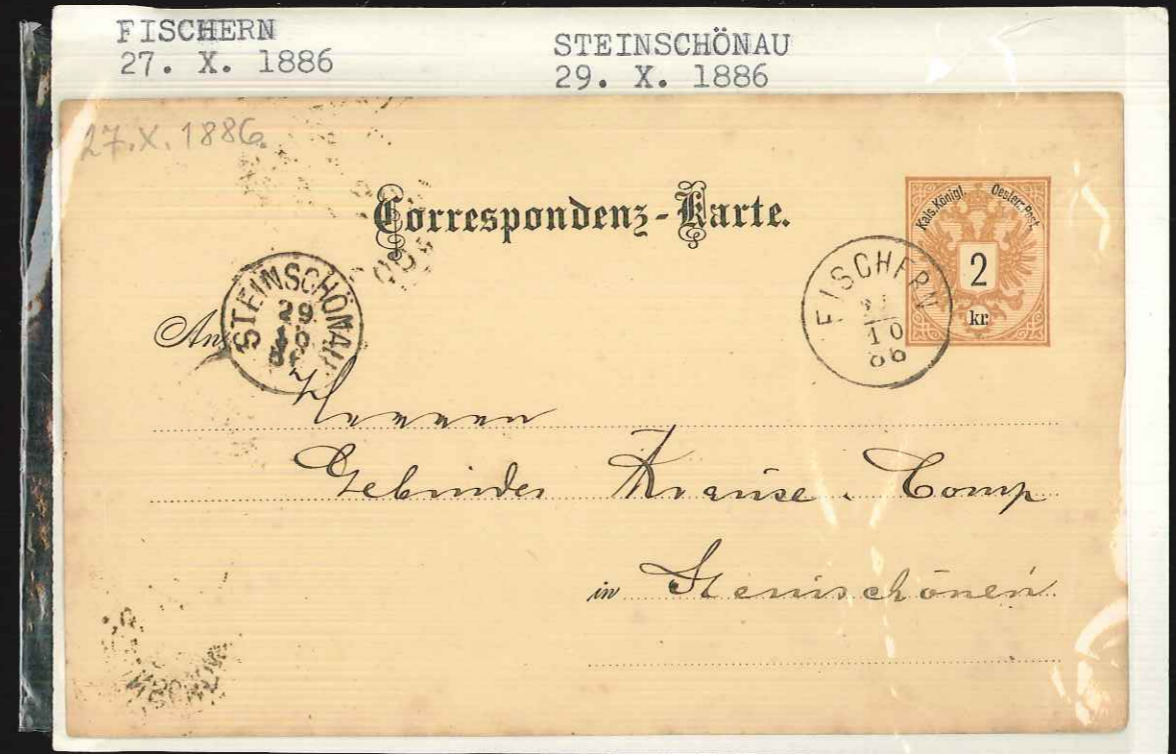 FISCHERN
27. X. 1886
STEINSCHÖNAU
29. X. 1886
27.X.1886.
Correspondenz-Karte.
Kais. Königl. Oesterr. Post.
2
kr.
FISCHERN
10
86
STEINSCHÖNAU
29
10
An
Herren
Gebrüder Krause. Comp
in Steinschönau